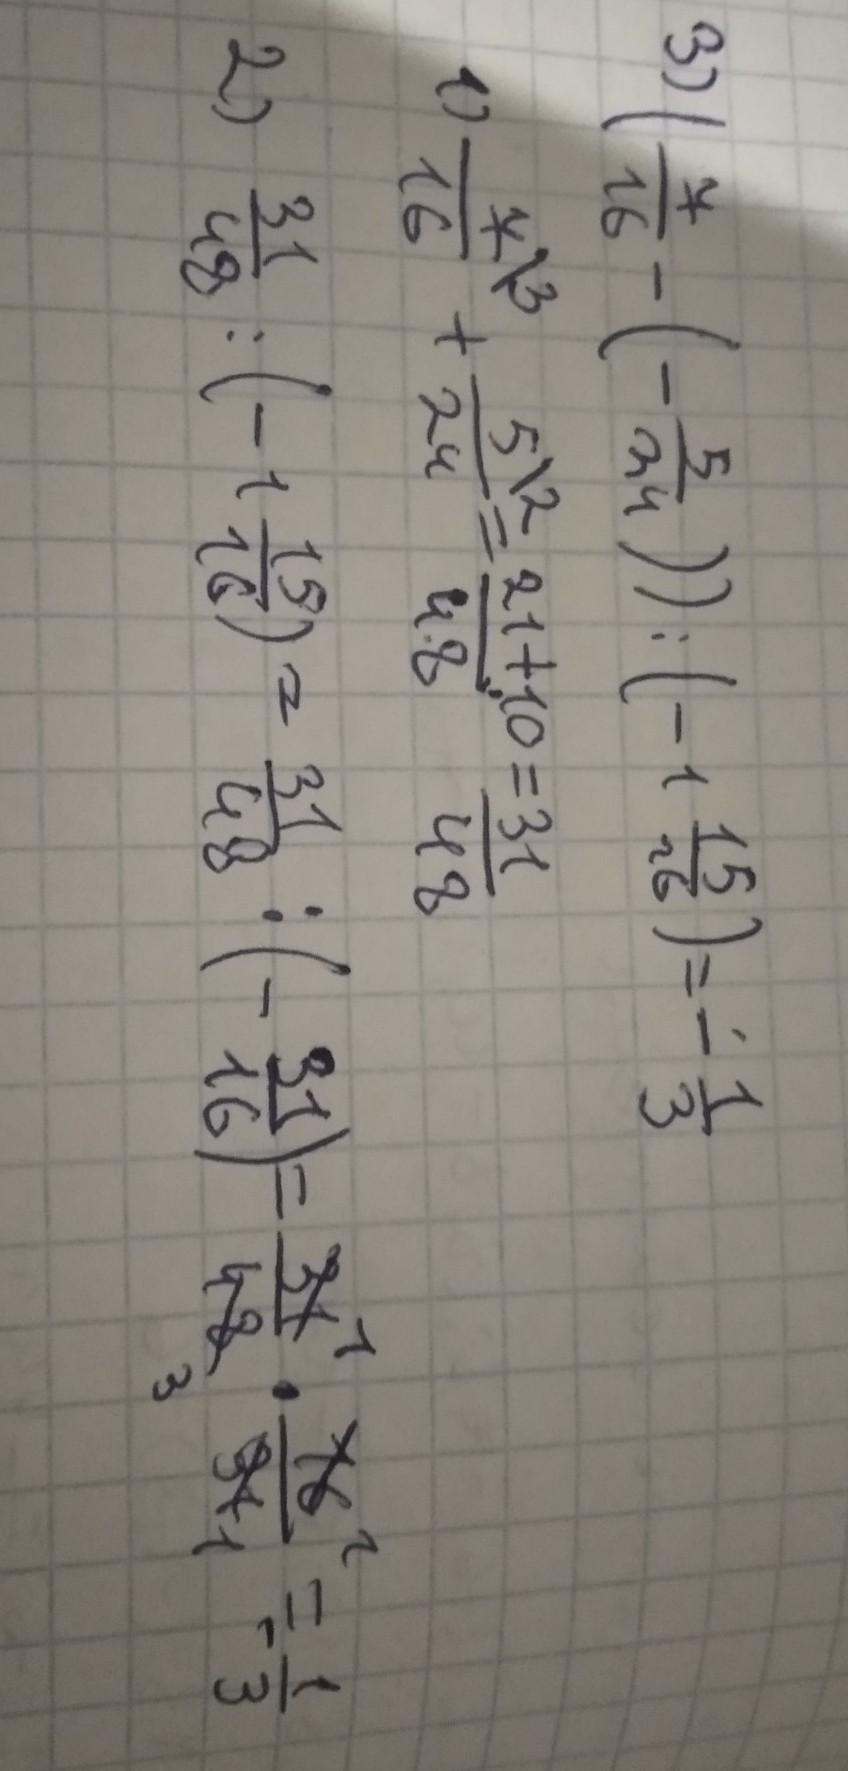 3) (7/16 - (-5/24)) : (-1 15/16) = -1/3
1) 7\3/16 + 5\2/24 = 21+10/48 = 31/48
2) 31/48 : (-1 15/16) = 31/48 : (-31/16) = 31 1/48 3 · 16 1/31 1 = -1/3